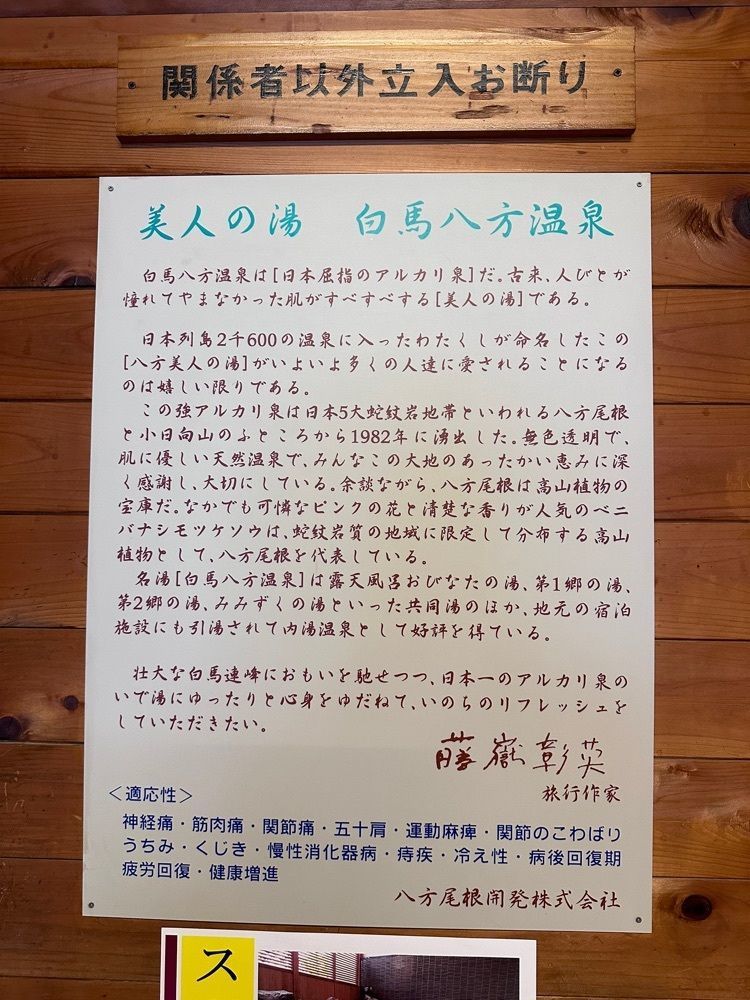 関係者以外立入お断り
美人の湯　白馬八方温泉
白馬八方温泉は[日本屈指のアルカリ泉]だ。古来、人びとが
憧れてやまなかった肌がすべすべする[美人の湯]である。
日本列島2千600の温泉に入ったわたくしが命名したこの
[八方美人の湯]がいよいよ多くの人達に愛されることになる
のは嬉しい限りである。
この強アルカリ泉は日本5大蛇紋岩地帯といわれる八方尾根
と小日向山のふところから1982年に湧出した。無色透明で、
肌に優しい天然温泉で、みんなこの大地のあったかい恵みに深
く感謝し、大切にしている。余談ながら、八方尾根は高山植物の
宝庫だ。なかでも可憐なピンクの花と清楚な香りが人気のベニ
バナシモツケソウは、蛇紋岩質の地域に限定して分布する高山
植物として、八方尾根を代表している。
名湯[白馬八方温泉]は露天風呂おびなたの湯、第1郷の湯、
第2郷の湯、みみずくの湯といった共同湯のほか、地元の宿泊
施設にも引湯されて内湯温泉として好評を得ている。
壮大な白馬連峰におもいを馳せつつ、日本一のアルカリ泉の
いで湯にゆったりと心身をゆだねて、いのちのリフレッシュを
していただきたい。
藤嶽彰英
旅行作家
＜適応性＞
神経痛・筋肉痛・関節痛・五十肩・運動麻痺・関節のこわばり
うちみ・くじき・慢性消化器病・痔疾・冷え性・病後回復期
疲労回復・健康増進
八方尾根開発株式会社
ス